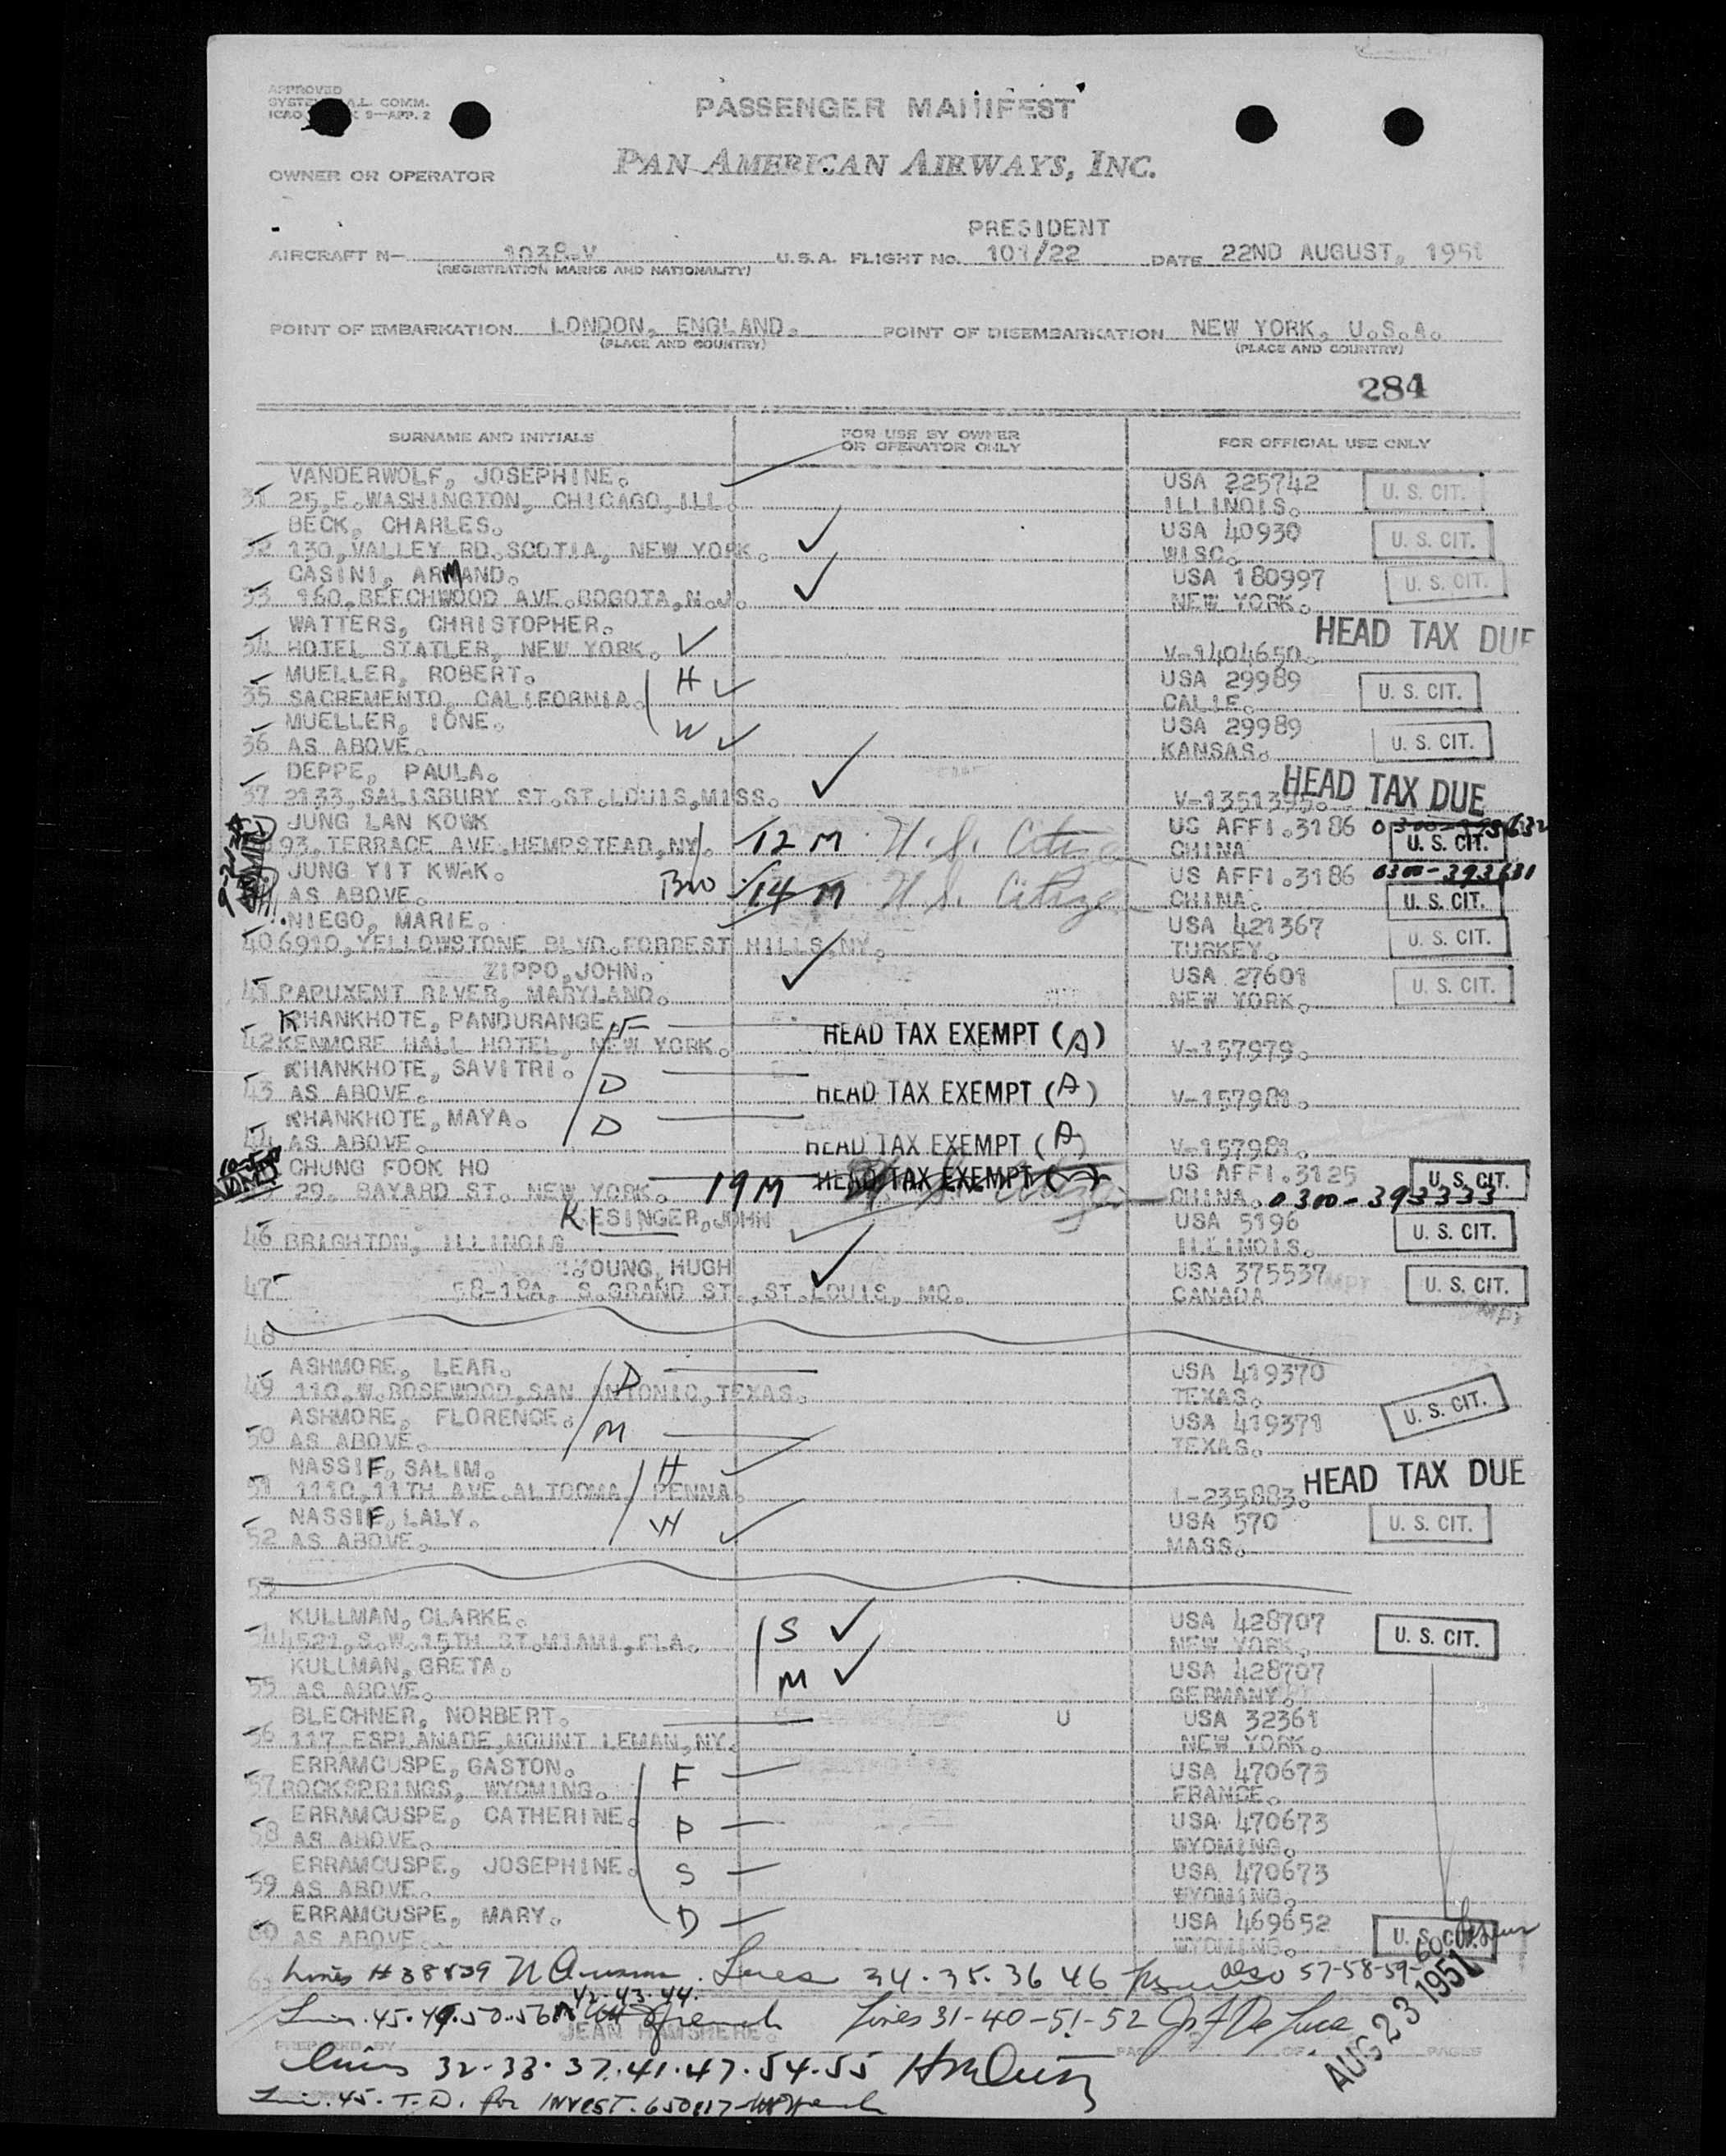 APPROVED
A.L. COMM.
9—APP. 2
PASSENGER MANIFEST
PAN AMERICAN AIRWAYS, INC.
OWNER OR OPERATOR
PRESIDENT
AIRCRAFT N— 1038-V U.S.A. FLIGHT NO. 101/22 DATE 22ND AUGUST, 1951
(REGISTRATION MARKS AND NATIONALITY)
POINT OF EMBARKATION LONDON, ENGLAND. POINT OF DISEMBARKATION NEW YORK, U.S.A.
(PLACE AND COUNTRY) (PLACE AND COUNTRY)
284
SURNAME AND INITIALS FOR USE BY OWNER OR OPERATOR ONLY FOR OFFICIAL USE ONLY
VANDERWOLF, JOSEPHINE. USA 225742 U. S. CIT.
31 25,E.WASHINGTON, CHICAGO,ILL. ILLINOIS.
BECK, CHARLES. USA 40930 U. S. CIT.
32 130,VALLEY RD.SCOTIA, NEW YORK. WISC.
CASINI, ARMAND. USA 180997 U. S. CIT.
33 160,BEECHWOOD AVE.BOGOTA,N.J. NEW YORK.
WATTERS, CHRISTOPHER. HEAD TAX DUE
34 HOTEL STATLER, NEW YORK. V-1404650.
MUELLER, ROBERT. H USA 29989 U. S. CIT.
35 SACREMENTO, CALIFORNIA. CALIF.
MUELLER, IONE. W USA 29989 U. S. CIT.
36 AS ABOVE. KANSAS.
DEPPE, PAULA. HEAD TAX DUE
37 2133,SALISBURY ST.ST.LOUIS,MISS. V-1351395.
JUNG LAN KOWK US AFFI.3186
93, TERRACE AVE.HEMPSTEAD,NY. 12 M U.S. Citizen CHINA U. S. CIT.
JUNG YIT KWAK. Bro 14 M U.S. Citizen US AFFI.3186 0300-393631
AS ABOVE. CHINA. U. S. CIT.
NIEGO, MARIE. USA 421367 U. S. CIT.
40 6910,YELLOWSTONE BLVD.FORREST HILLS,NY. TURKEY.
ZIPPO,JOHN. USA 27601 U. S. CIT.
41 PAPUXENT RIVER, MARYLAND. NEW YORK.
KHANKHOTE, PANDURANGE. F HEAD TAX EXEMPT (A)
42 KENMORE HALL HOTEL, NEW YORK. V-157979.
KHANKHOTE, SAVITRI. D HEAD TAX EXEMPT (A)
43 AS ABOVE. V-157981.
KHANKHOTE, MAYA. D HEAD TAX EXEMPT (A)
44 AS ABOVE. V-157981.
CHUNG FOOK HO HEAD TAX EXEMPT US AFFI.3125 U. S. CIT.
29. BAYARD ST. NEW YORK. 19 M CHINA. 0300-393333
KIESINGER,JOHN USA 5196 U. S. CIT.
46 BRIGHTON, ILLINOIS ILLINOIS.
YOUNG, HUGH USA 375537 U. S. CIT.
47 58-18A, S.GRAND ST.,ST.LOUIS, MO. CANADA
48
ASHMORE, LEAR. D USA 419370
49 110,W.ROSEWOOD,SAN ANTONIO,TEXAS. TEXAS. U. S. CIT.
ASHMORE, FLORENCE. M USA 419371
50 AS ABOVE. TEXAS.
NASSIF, SALIM. H HEAD TAX DUE
51 1110,11TH AVE.ALTOOMA, PENNA. I-235883.
NASSIF, LALY. W USA 570 U. S. CIT.
52 AS ABOVE. MASS.
53
KULLMAN, CLARKE. S USA 428707 U. S. CIT.
54 4521,S.W.15TH ST.MIAMI,FLA. NEW YORK.
KULLMAN,GRETA. M USA 428707
55 AS ABOVE. GERMANY.
BLECHNER, NORBERT. U USA 32361
56 117 ESPLANADE,MOUNT LEMAN,NY. NEW YORK.
ERRAMCUSPE, GASTON. F USA 470673
57 ROCKSPRINGS, WYOMING. FRANCE.
ERRAMCUSPE, CATHERINE. D USA 470673
58 AS ABOVE. WYOMING.
ERRAMCUSPE, JOSEPHINE. S USA 470673
59 AS ABOVE. WYOMING.
ERRAMCUSPE, MARY. D USA 469652
60 AS ABOVE. WYOMING. U. S. CIT.
Lines # 38 & 39 Lines 34.35.36 46 also 57-58-59-60
42.43.44.
Lines 31-40-51-52
JEAN HAMSHERE.
PREPARED BY PAGE OF PAGES
AUG 23 1951
Lines 32-33.37.41.47.54.55
Line.45. T.D. for INVEST.